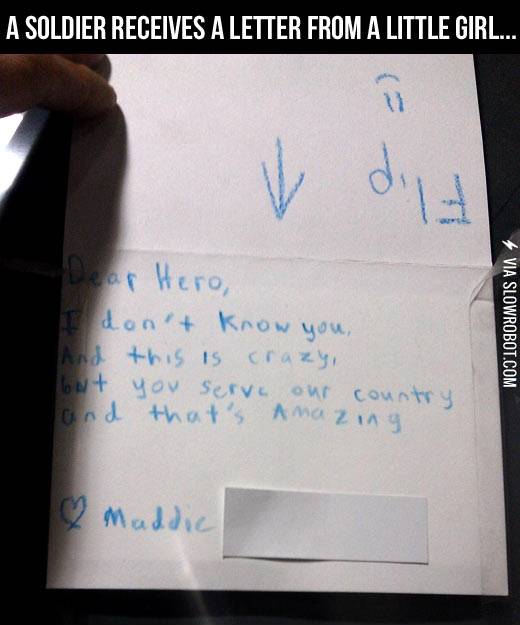 A SOLDIER RECEIVES A LETTER FROM A LITTLE GIRL...
Flip
Dear Hero,
I don't know you,
And this is crazy,
but you serve our country
and that's Amazing
♡ Maddie
VIA SLOWROBOT.COM